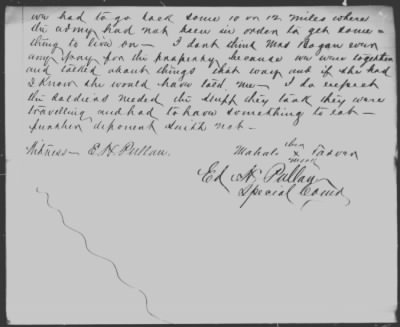 we had to go back some 10 or 12 miles where
the army had not been in order to get some-
thing to live on — I dont think Mrs Eagan ever
any pay for the property because we were together
and talked about things that way and if she had
I know she would have told me — I do expect
the soldiers needed the stuff they took they were
travelling and had to have something to eat —
further deponent saith not —
Witness — E H Pullan.
Mahala her x mark Tarver
Ed. H. Pullan
Special Comr